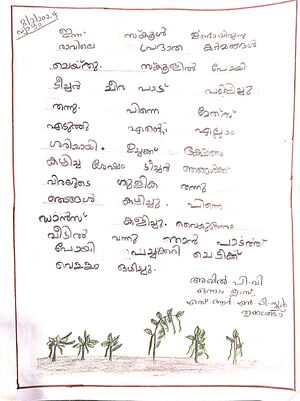 8/2/2024
വ്യാഴം
ഇന്ന് സ്കൂൾ ഉണ്ടായിരുന്നു
രാവിലെ പ്രഭാത കർമങ്ങൾ
ചെയ്തു. സ്കൂളിൽ പോയി
ടീച്ചർ ചീര പാട്ട് പഠിപ്പിച്ചു
തന്നു. പിന്നെ
എടുത്തു എന്റെ എല്ലാം
ശരിയായി. ഉച്ചക്ക് ഭക്ഷണം
കഴിച്ച ശേഷം ടീച്ചർ ഞങ്ങൾക്ക്
വിരയുടെ ഗുളിക തന്നു
ഞങ്ങൾ കഴിച്ചു. പിന്നെ
ഡാൻസ് കളിച്ചു. വൈകുന്നേരം
വീട്ടിൽ വന്നു ഞാൻ പാടത്ത്
പോയി പച്ചക്കറി ചെടിക്ക്
വെള്ളം ഒഴിച്ചു.
അഖിൽ പി.വി
ഒന്നാം ക്ലാസ്
എസ്.ആർ.എൽ.പി.സ്കൂൾ